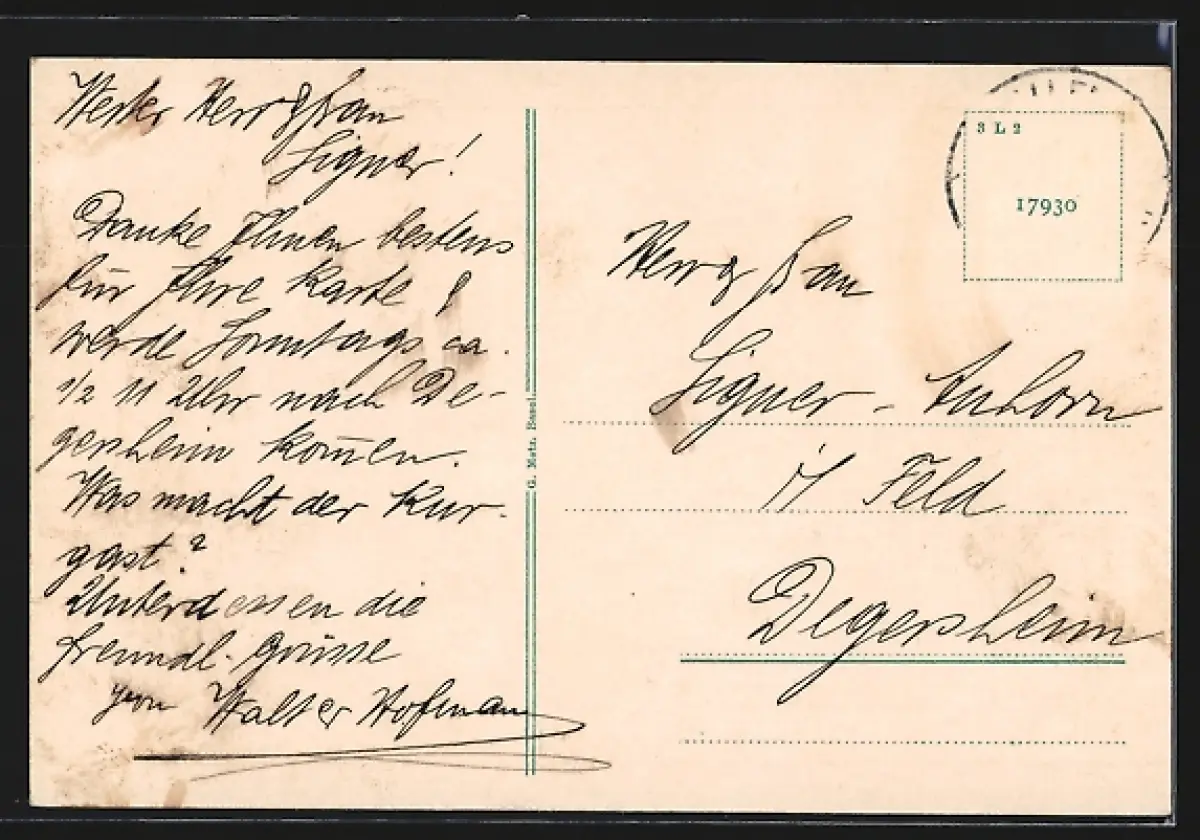 Werter Herr & Frau
Signer!
Danke Ihnen bestens
für Ihre Karte &
werde Sonntags ca.
1/2 11 Uhr nach De-
gersheim kom̄en.
Was macht der Kur-
gast?
Unterdessen die
freundl. Grüsse
von Walter Hofmann
G. Metz, Basel.
3 L 2
17930
Herr & Frau
Signer - Enhorn
i/ Feld
Degersheim